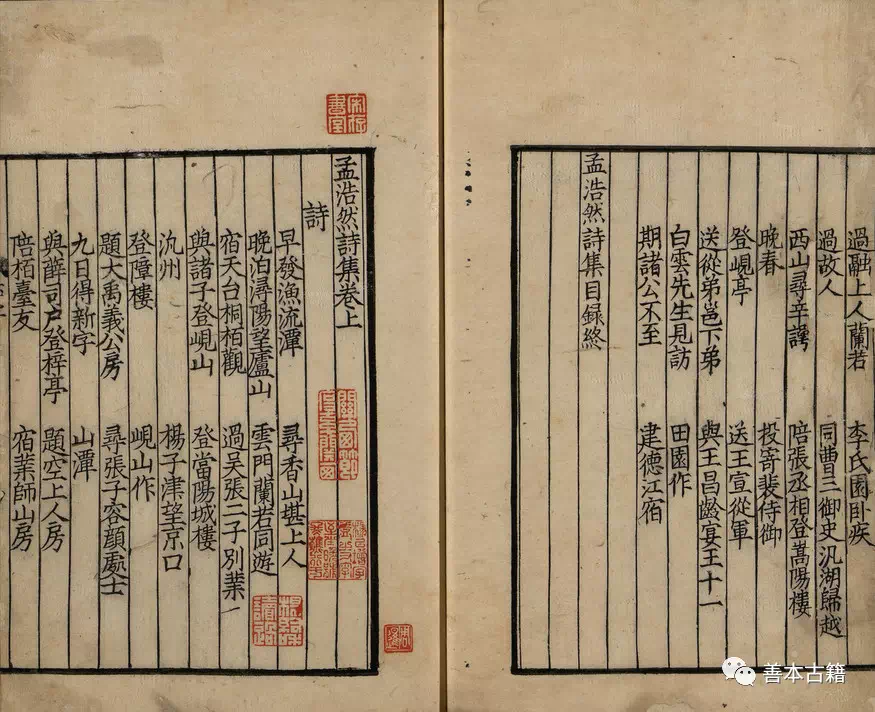 過融上人蘭若　李氏園卧疾
過故人　同曹三御史汎湖歸越
西山尋辛諤　陪張丞相登嵩陽樓
晚春　投寄裴侍御
登峴亭　送王宣從軍
送從弟邕下第　與王昌齡宴王十一
白雲先生見訪　田園作
期諸公不至　建德江宿
孟浩然詩集目錄終
宋存書室
孟浩然詩集卷上
詩
早發漁浦潭　尋香山堪上人
晚泊潯陽望廬山　雲門蘭若同遊
宿天台桐栢觀　過吳張二子別業
與諸子登峴山　登當陽城樓
氿州　楊子津望京口
登障樓　峴山作
題大禹義公房　尋張子容顏處士
九日得新字　山潭
與薛司戶登梓亭　題空上人房
陪栢臺友　宿業師山房
善本古籍